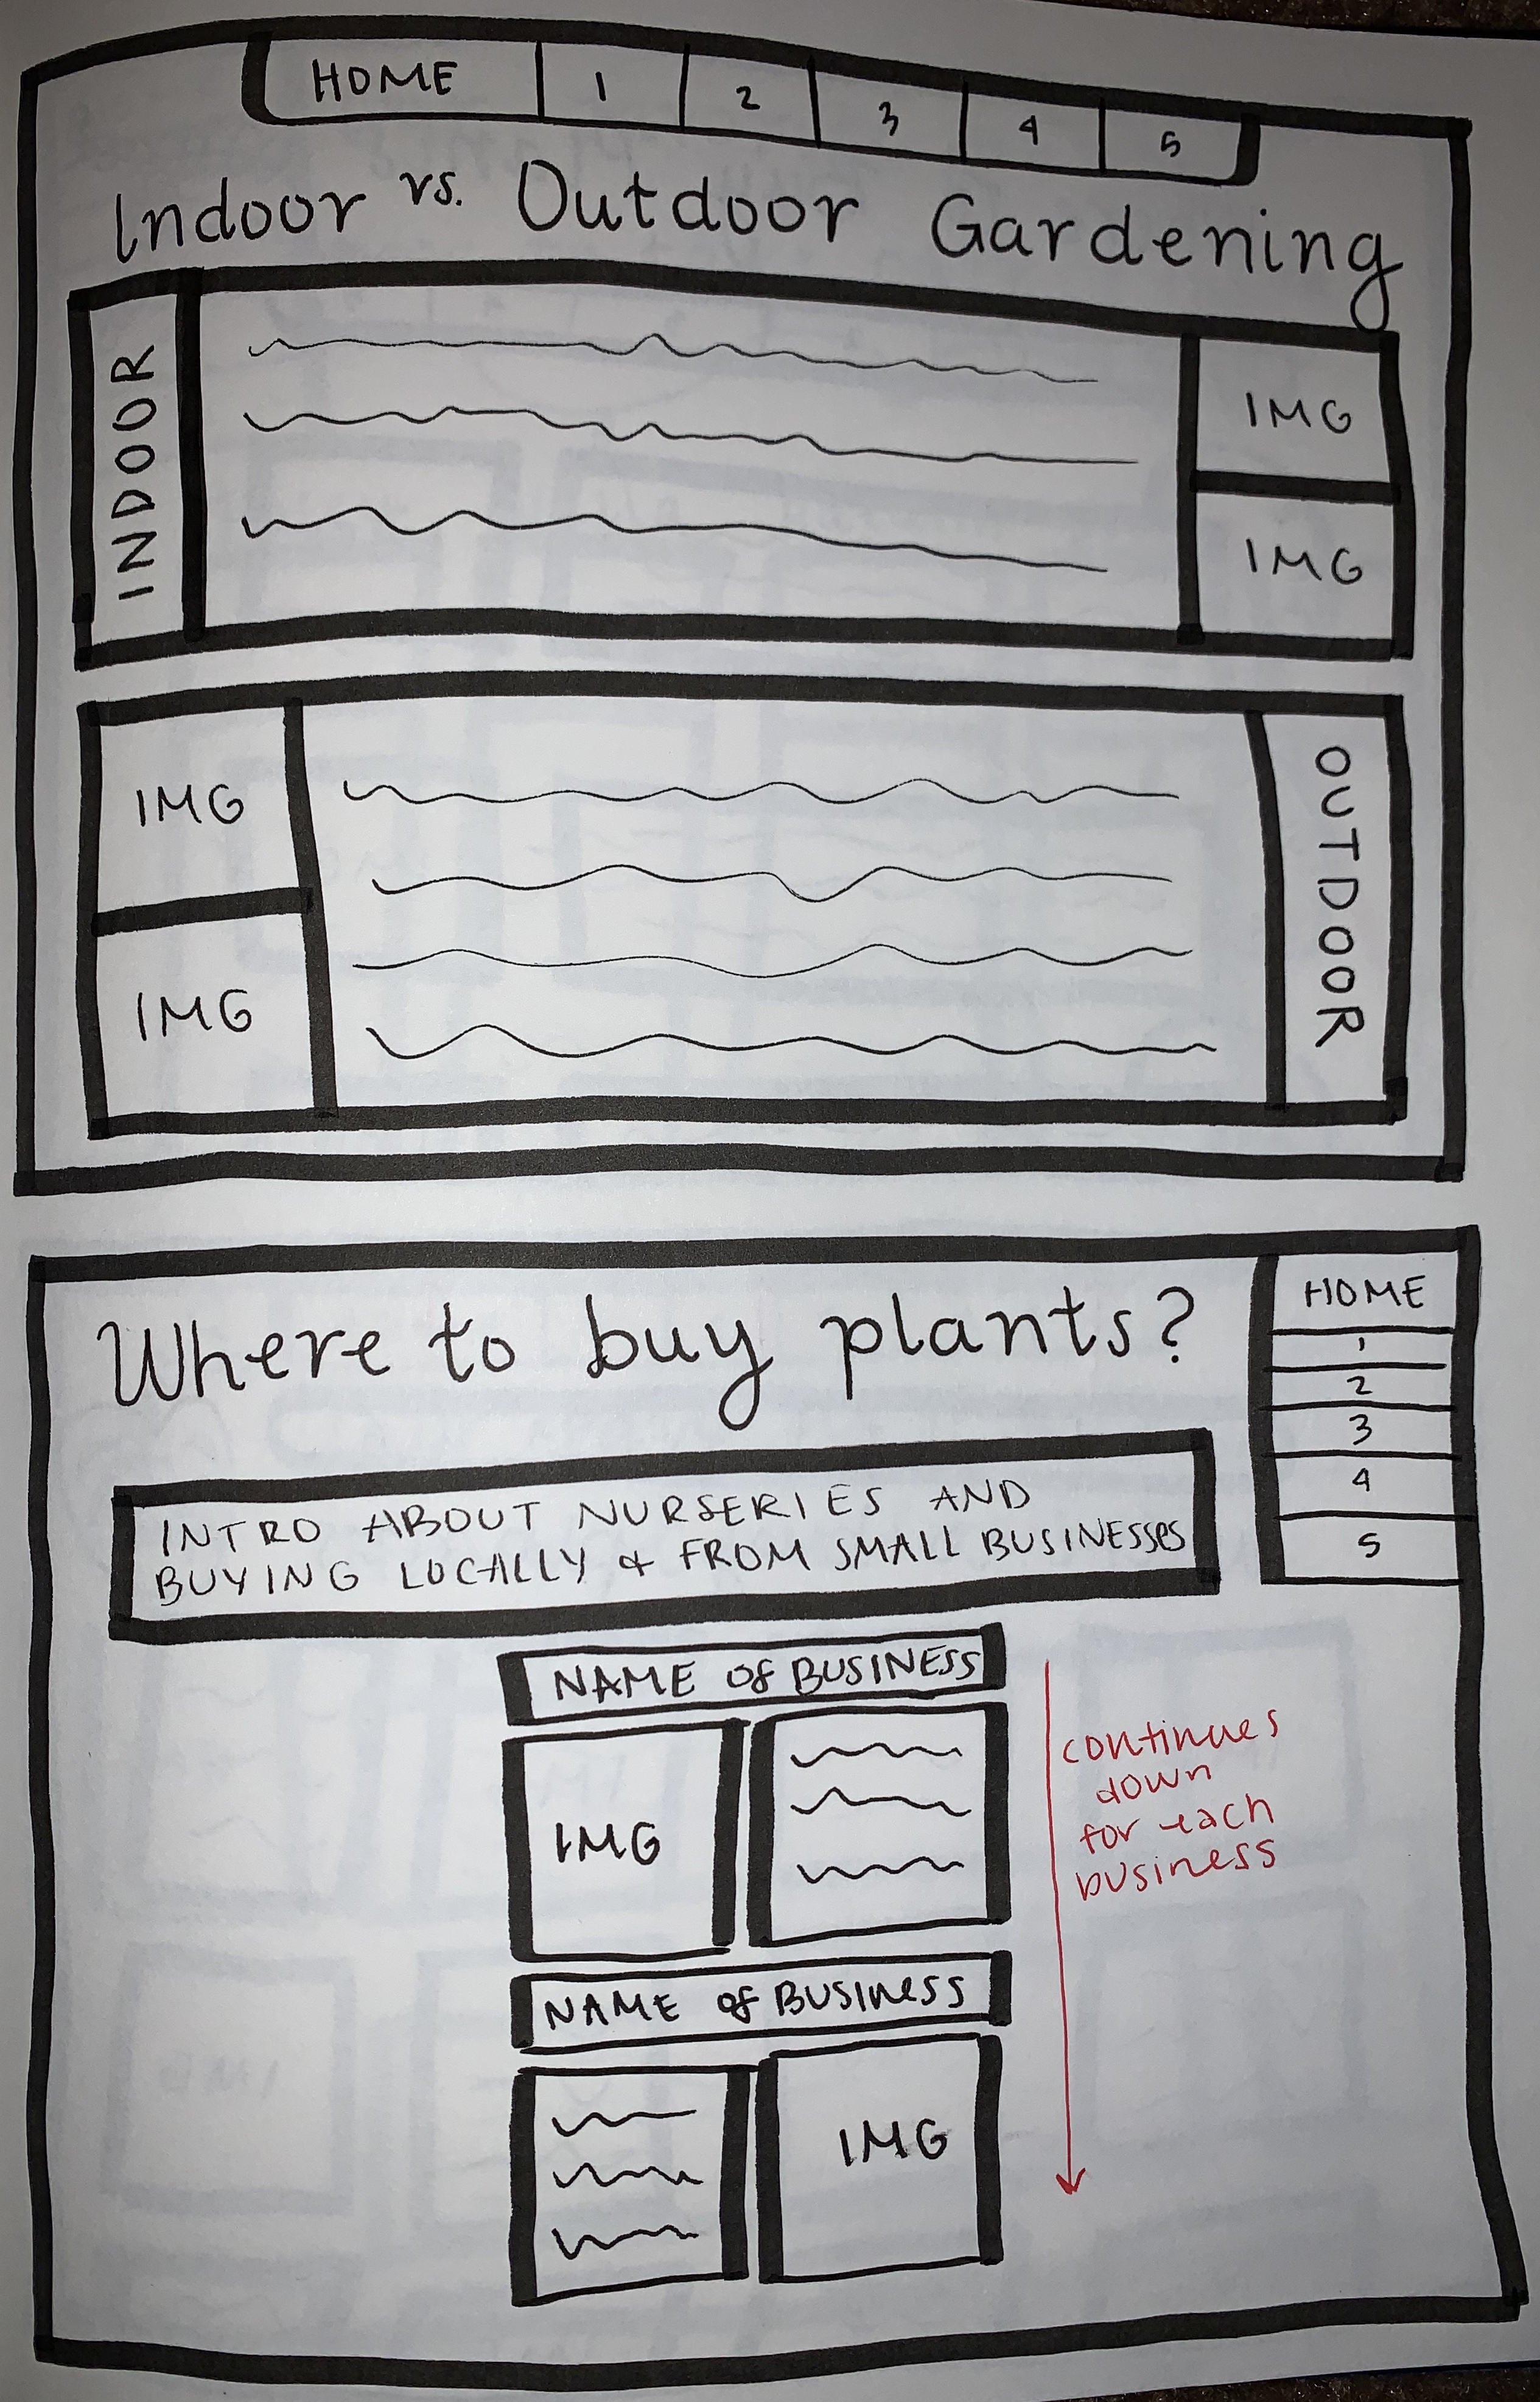 HOME 1 2 3 4 5
Indoor vs. Outdoor Gardening
INDOOR
IMG
IMG
IMG
IMG
OUTDOOR
Where to buy plants?
HOME
1
2
3
4
5
INTRO ABOUT NURSERIES AND
BUYING LOCALLY & FROM SMALL BUSINESSES
NAME OF BUSINESS
IMG
continues
down
for each
business
NAME OF BUSINESS
IMG